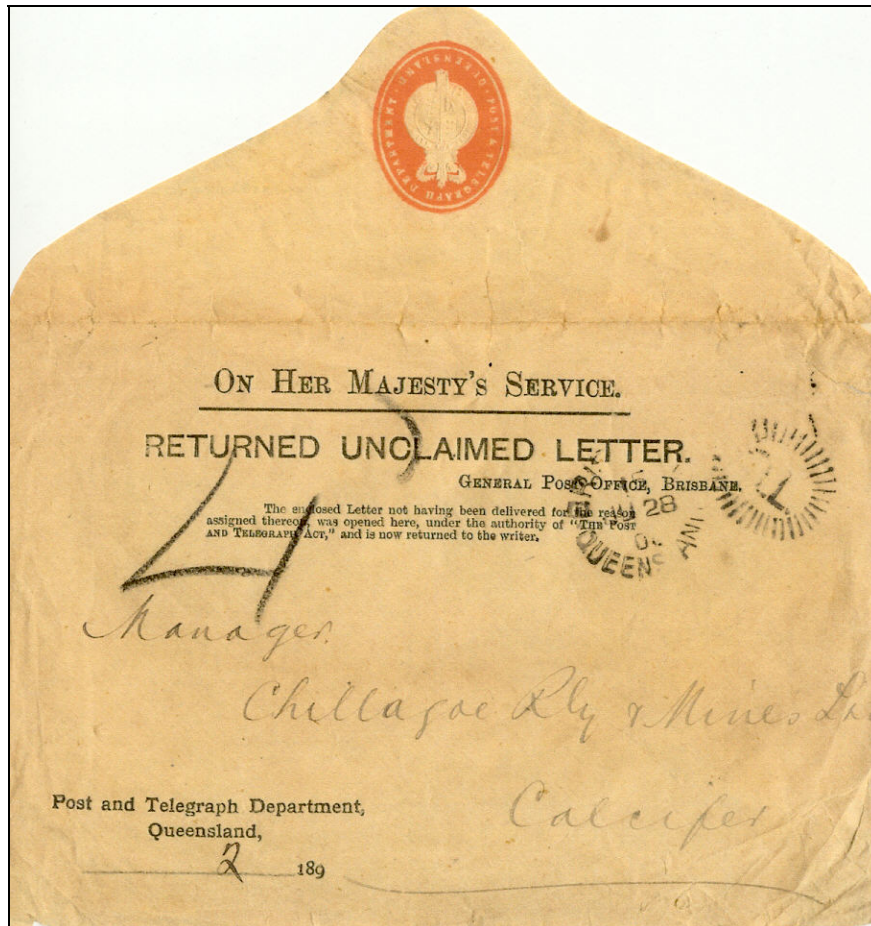 QUEENSLAND · POST & TELEGRAPH DEPARTMENT ·
ON HER MAJESTY'S SERVICE.
RETURNED UNCLAIMED LETTER.
GENERAL POST OFFICE, BRISBANE.
The enclosed Letter not having been delivered for the reason
assigned thereon, was opened here, under the authority of "THE POST
AND TELEGRAPH ACT," and is now returned to the writer.
4
28
QUEENSLAND
Manager.
Chillagoe Rly & Mines
Calcifer
Post and Telegraph Department,
Queensland,
2 189